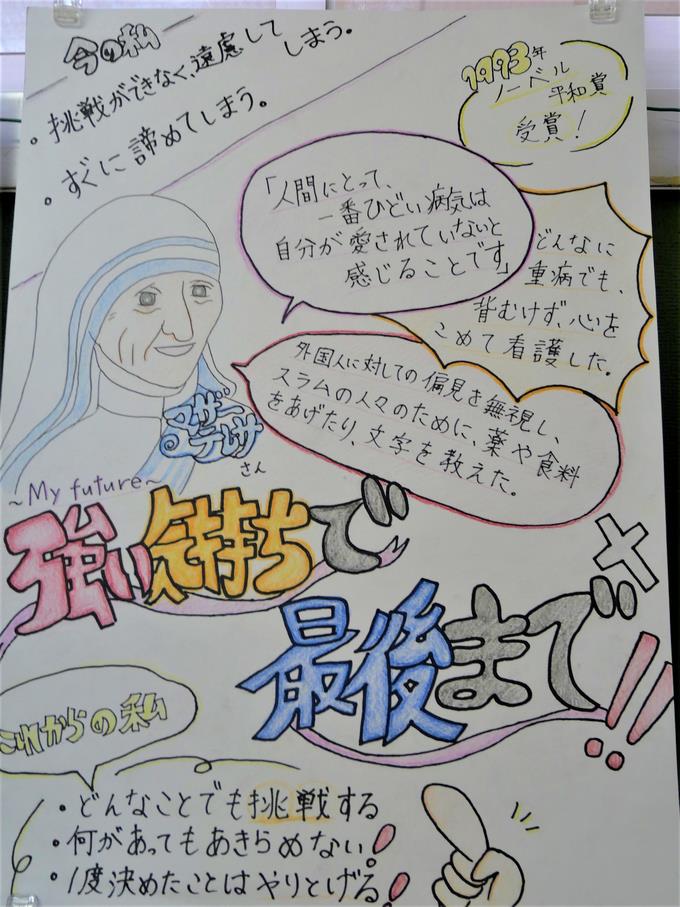 今の私
・挑戦ができなく、遠慮してしまう。
・すぐに諦めてしまう。
1973年
ノーベル
平和賞
受賞!
「人間にとって、
一番ひどい病気は
自分が愛されていないと
感じることです」
どんなに
重病でも、
背むけず、心を
こめて看護した。
外国人に対しての偏見を無視し、
スラムの人々のために、薬や食料
をあげたり、文字を教えた。
マザー
テレサ
さん
~My future~
強い気持ちで
最後まで!!
これからの私
・どんなことでも挑戦する
・何があってもあきらめない!
・1度決めたことはやりとげる!